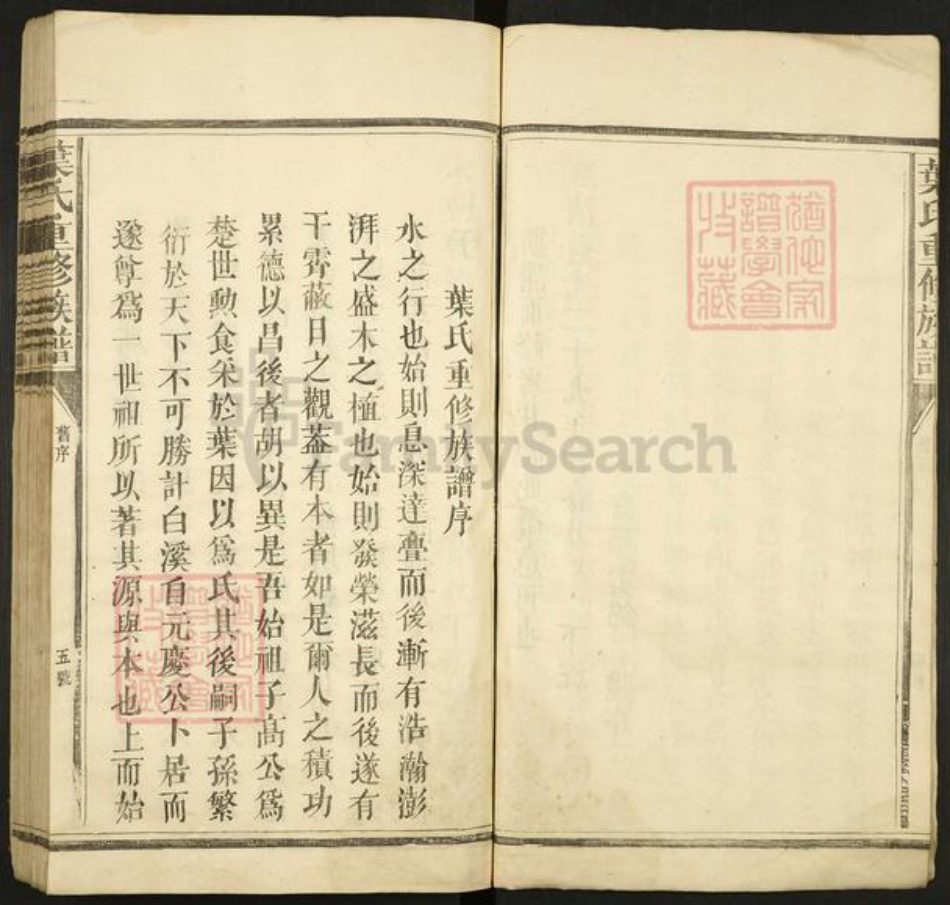 葉氏重修族譜
猶他家
譜學會
收藏
葉氏重修族譜序
水之行也始則息深達亹而後漸有浩瀚澎
湃之盛木之植也始則發榮滋長而後遂有
干霄蔽日之觀葢有本者如是爾人之積功
累德以昌後者胡以異是吾始祖子高公爲
楚世勳食采於葉因以爲氏其後嗣子孫繁
衍於天下不可勝計白溪自元慶公卜居而
遂尊爲一世祖所以著其源與本也上而始
猶他家
譜學會
收藏
葉氏重修族譜
舊序
五號
FamilySearch